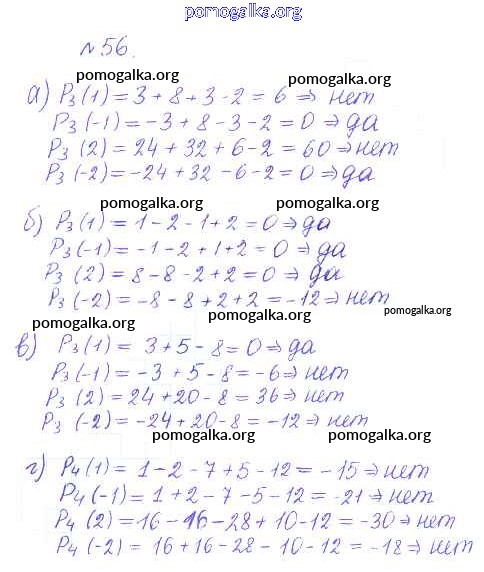 pomogalka.org
№56.
pomogalka.org pomogalka.org
а) P₃(1) = 3 + 8 + 3 - 2 = 6 ⇒ нет
P₃(-1) = -3 + 8 - 3 - 2 = 0 ⇒ да
P₃(2) = 24 + 32 + 6 - 2 = 60 ⇒ нет
P₃(-2) = -24 + 32 - 6 - 2 = 0 ⇒ да
pomogalka.org pomogalka.org
б) P₃(1) = 1 - 2 - 1 + 2 = 0 ⇒ да
P₃(-1) = -1 - 2 + 1 + 2 = 0 ⇒ да
P₃(2) = 8 - 8 - 2 + 2 = 0 ⇒ да
P₃(-2) = -8 - 8 + 2 + 2 = -12 ⇒ нет
pomogalka.org pomogalka.org pomogalka.org
в) P₃(1) = 3 + 5 - 8 = 0 ⇒ да
P₃(-1) = -3 + 5 - 8 = -6 ⇒ нет
P₃(2) = 24 + 20 - 8 = 36 ⇒ нет
P₃(-2) = -24 + 20 - 8 = -12 ⇒ нет
pomogalka.org pomogalka.org
г) P₄(1) = 1 - 2 - 7 + 5 - 12 = -15 ⇒ нет
P₄(-1) = 1 + 2 - 7 - 5 - 12 = -21 ⇒ нет
P₄(2) = 16 - 16 - 28 + 10 - 12 = -30 ⇒ нет
P₄(-2) = 16 + 16 - 28 - 10 - 12 = -18 ⇒ нет